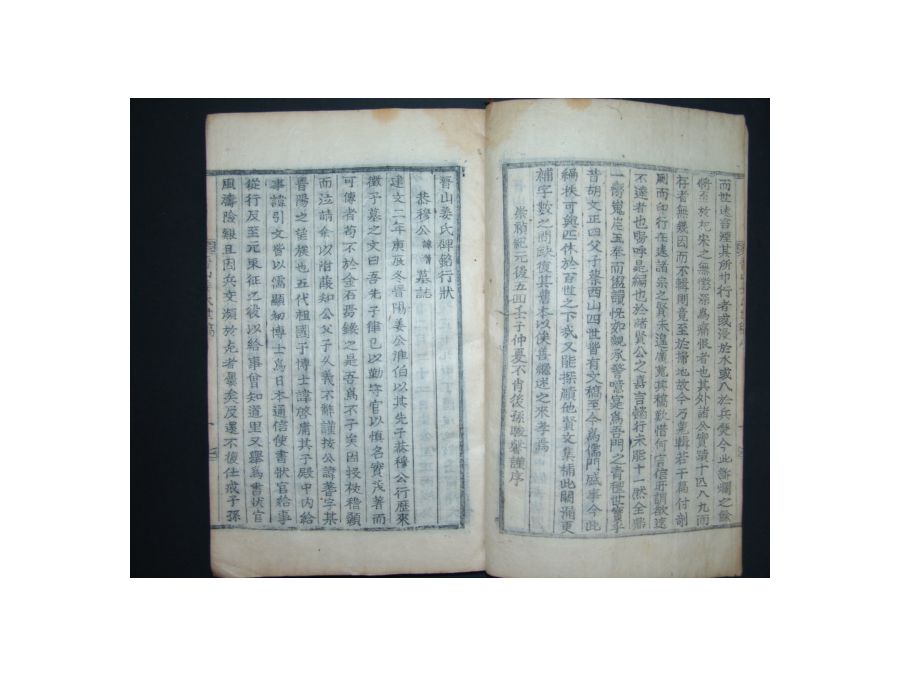 而世述言湮其所印行者或漫於水或入於兵燹今此斷爛之餘
將至於杞宋之無懲深爲痛恨者也其外諸公實蹟十亡八九而
存者無幾因而不輯則竟至於掃地故今乃蒐輯若干篇付剞
不達者也嗚呼是編也於賢公之嘉言懿行未能十一然全鼎
一臠崑崗玉奉而溫讀恍如親承警咳寔爲吾門之靑氊世寶乎
昔胡文正四父子蔡西山四世皆有文稿至今爲儒門盛事今此
編秩可與匹休於百世之下哉又能採顧他賢文集補此闕漏更
補字數之間缺復其舊本以俟善繼述之來孝焉
崇禎紀元後五回壬子仲夏不肖後孫 馨謹序
晉山姜氏碑銘行狀
恭穆公諱蓍墓誌
建文二年庚辰冬晉陽姜公淮伯以其先子恭穆公行歷來
徵予墓之文曰吾先子律己以勤守官以愼名實茂著而
可傳者苟不於金石焉錄之是吾爲不子矣因授狀稽顙
而泣請余以湔 知公父子久義不辭謹按公諱蓍字某
晉陽之望族也五代祖國子博士諱啓庸其子殿中內給
事諱引文嘗以儒顯初博士爲日本通信使書狀官給事
從行及至元東征之役以給事曾知道里又擧爲書狀官
風濤險艱且因兵交瀕於危者屢矣及還不復仕戒子孫